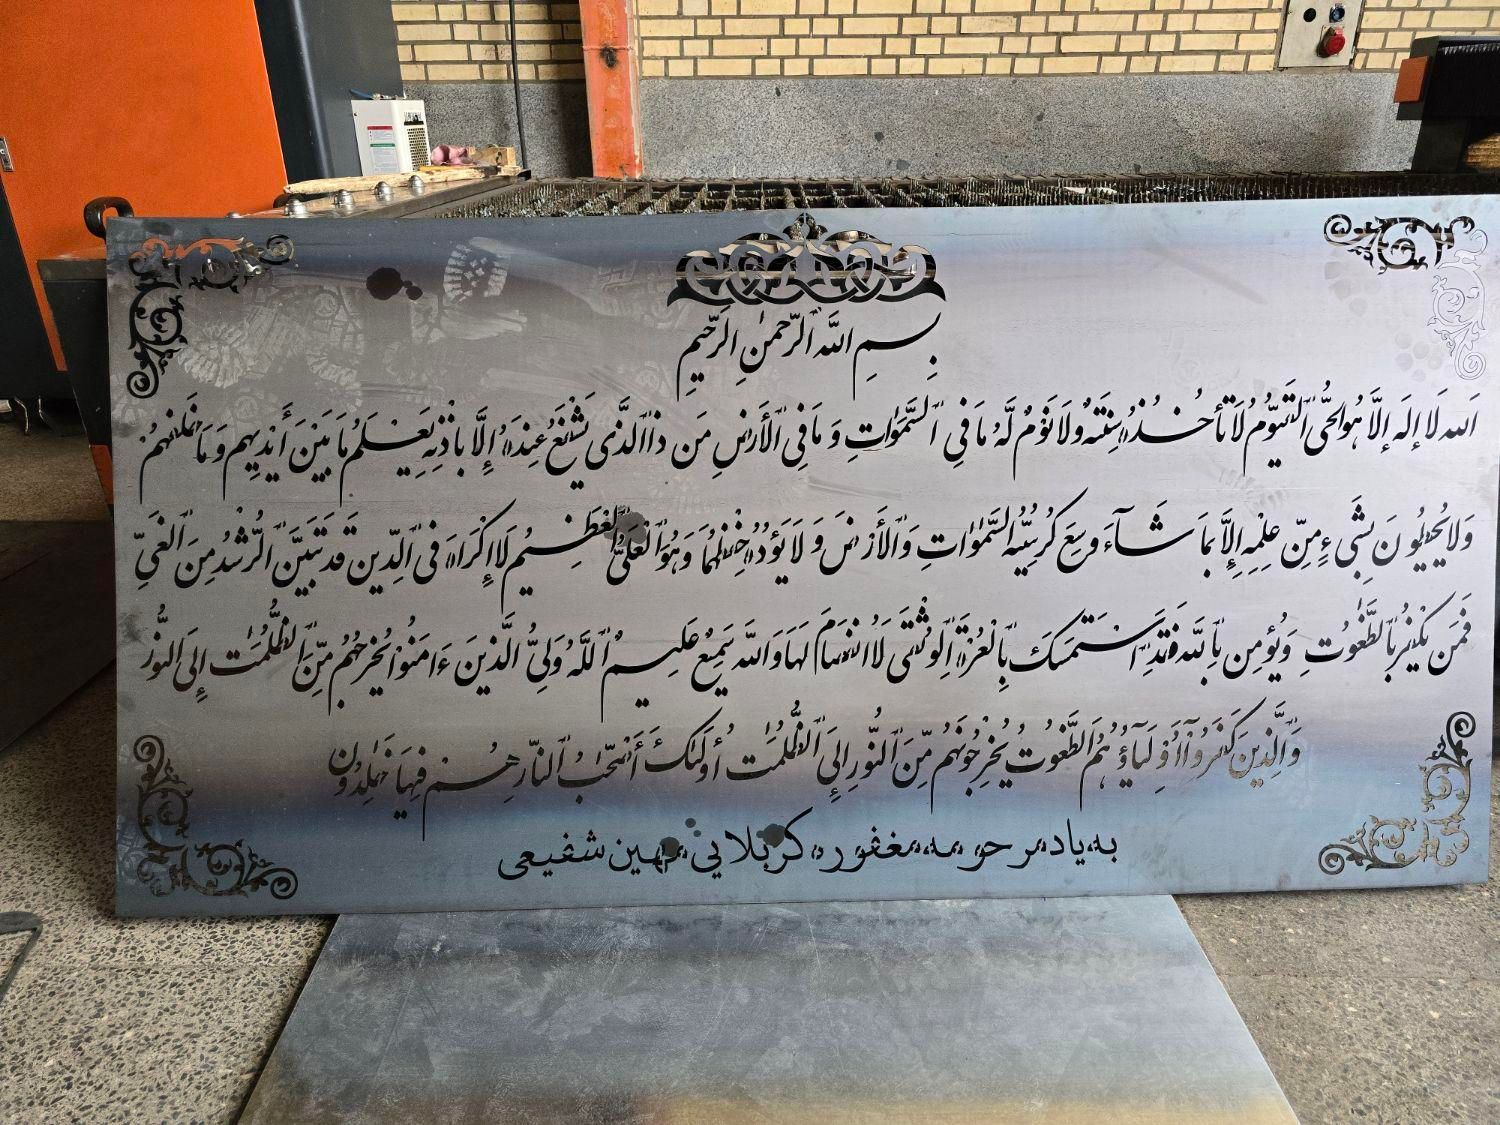 بِسْمِ اللَّهِ الرَّحْمَٰنِ الرَّحِيمِ
اَللهُ لَا إِلَهَ إِلَّا هُوَ الْحَيُّ الْقَيُّومُ لَا تَأْخُذُهُ سِنَةٌ وَلَا نَوْمٌ لَهُ مَا فِي السَّمَوَاتِ وَمَا فِي الْأَرْضِ مَن ذَا الَّذِى يَشْفَعُ عِندَهُ إِلَّا بِإِذْنِهِ يَعْلَمُ مَا بَيْنَ أَيْدِيهِمْ وَمَا خَلْفَهُمْ
وَلَا يُحِيطُونَ بِشَىْءٍ مِّنْ عِلْمِهِ إِلَّا بِمَا شَآءَ وَسِعَ كُرْسِيُّهُ السَّمَٰوَاتِ وَالْأَرْضَ وَلَا يَؤُدُهُ حِفْظُهُمَا وَهُوَ الْعَلِىُّ الْعَظِيمُ لَا إِكْرَاهَ فِى الدِّينِ قَد تَّبَيَّنَ الرُّشْدُ مِنَ الْغَىِّ
فَمَن يَكْفُرْ بِالطَّٰغُوتِ وَيُؤْمِن بِاللَّهِ فَقَدِ اسْتَمْسَكَ بِالْعُرْوَةِ الْوُثْقَى لَا انفِصَامَ لَهَا وَاللَّهُ سَمِيعٌ عَلِيمٌ اللَّهُ وَلِيُّ الَّذِينَ ءَامَنُوا يُخْرِجُهُم مِّنَ الظُّلُمَٰتِ إِلَى النُّورِ
وَالَّذِينَ كَفَرُوٓا أَوْلِيَآؤُهُمُ الطَّٰغُوتُ يُخْرِجُونَهُم مِّنَ النُّورِ إِلَى الظُّلُمَٰتِ أُوْلَٰٓئِكَ أَصْحَٰبُ النَّارِ هُمْ فِيهَا خَٰلِدُونَ
به یاد مرحومه مغفوره کربلایی مهین شفیعی